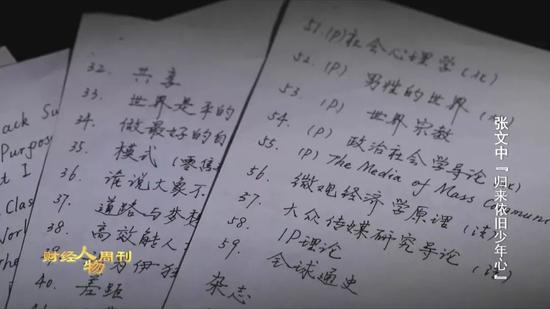 ack Su
Purpos
t I
Clas
32. 共享
33. 世界是平的
34. 做最好的自
35. 模式(零售
36. 谁说大象不
37. 道路与梦
38. 高效能人
为伊
40. 差距
杂志
51.(P)社会心理学(北)
52. (P) 男性的世界
53. (P) 世界宗教
54. (P) 政治社会学导论
55. (P) The Media of Mass Communi
56. 微观经济学原理(清)
57. 大众传媒研究导论
58. IP理论
59. 全球通史
财经人物周刊
张文中『归来依旧少年心』